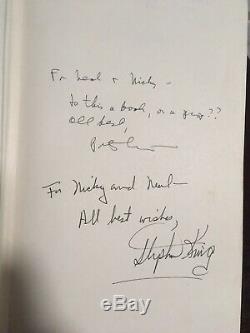 For Neal & Nicky –
is this a book, or a ??
All best,
For Nicky and Neal –
All best wishes,
Stephen King